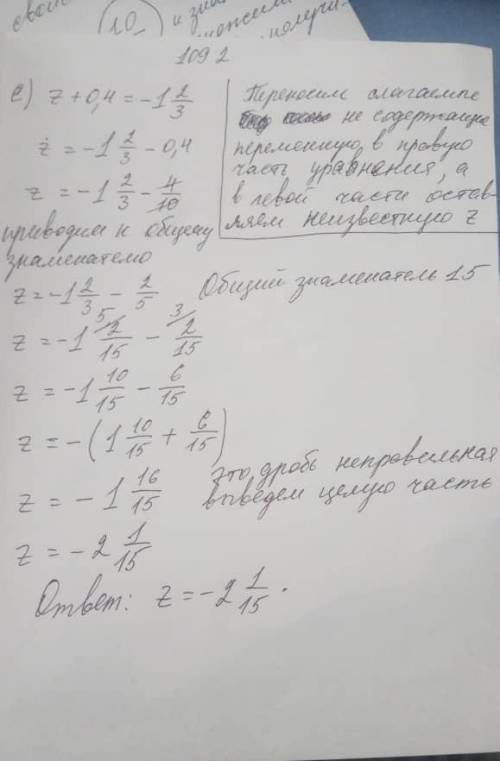 свой
10
и зна
получи-
1092
е) z + 0,4 = -1 2/3
Переносим слагаемые
не содержащие
переменную, в правую
часть уравнения, а
в левой части остав-
ляем неизвестную z
z = -1 2/3 - 0,4
z = -1 2/3 - 4/10
приводим к общему
знаменателю
z = -1 2/3 - 2/5 Общий знаменатель 15
z = -1 2/15 5/ - 2/15 3/
z = -1 10/15 - 6/15
z = -(1 10/15 + 6/15)
z = -1 16/15 это дробь неправильная
выведем целую часть
z = -2 1/15
Ответ: z = -2 1/15.